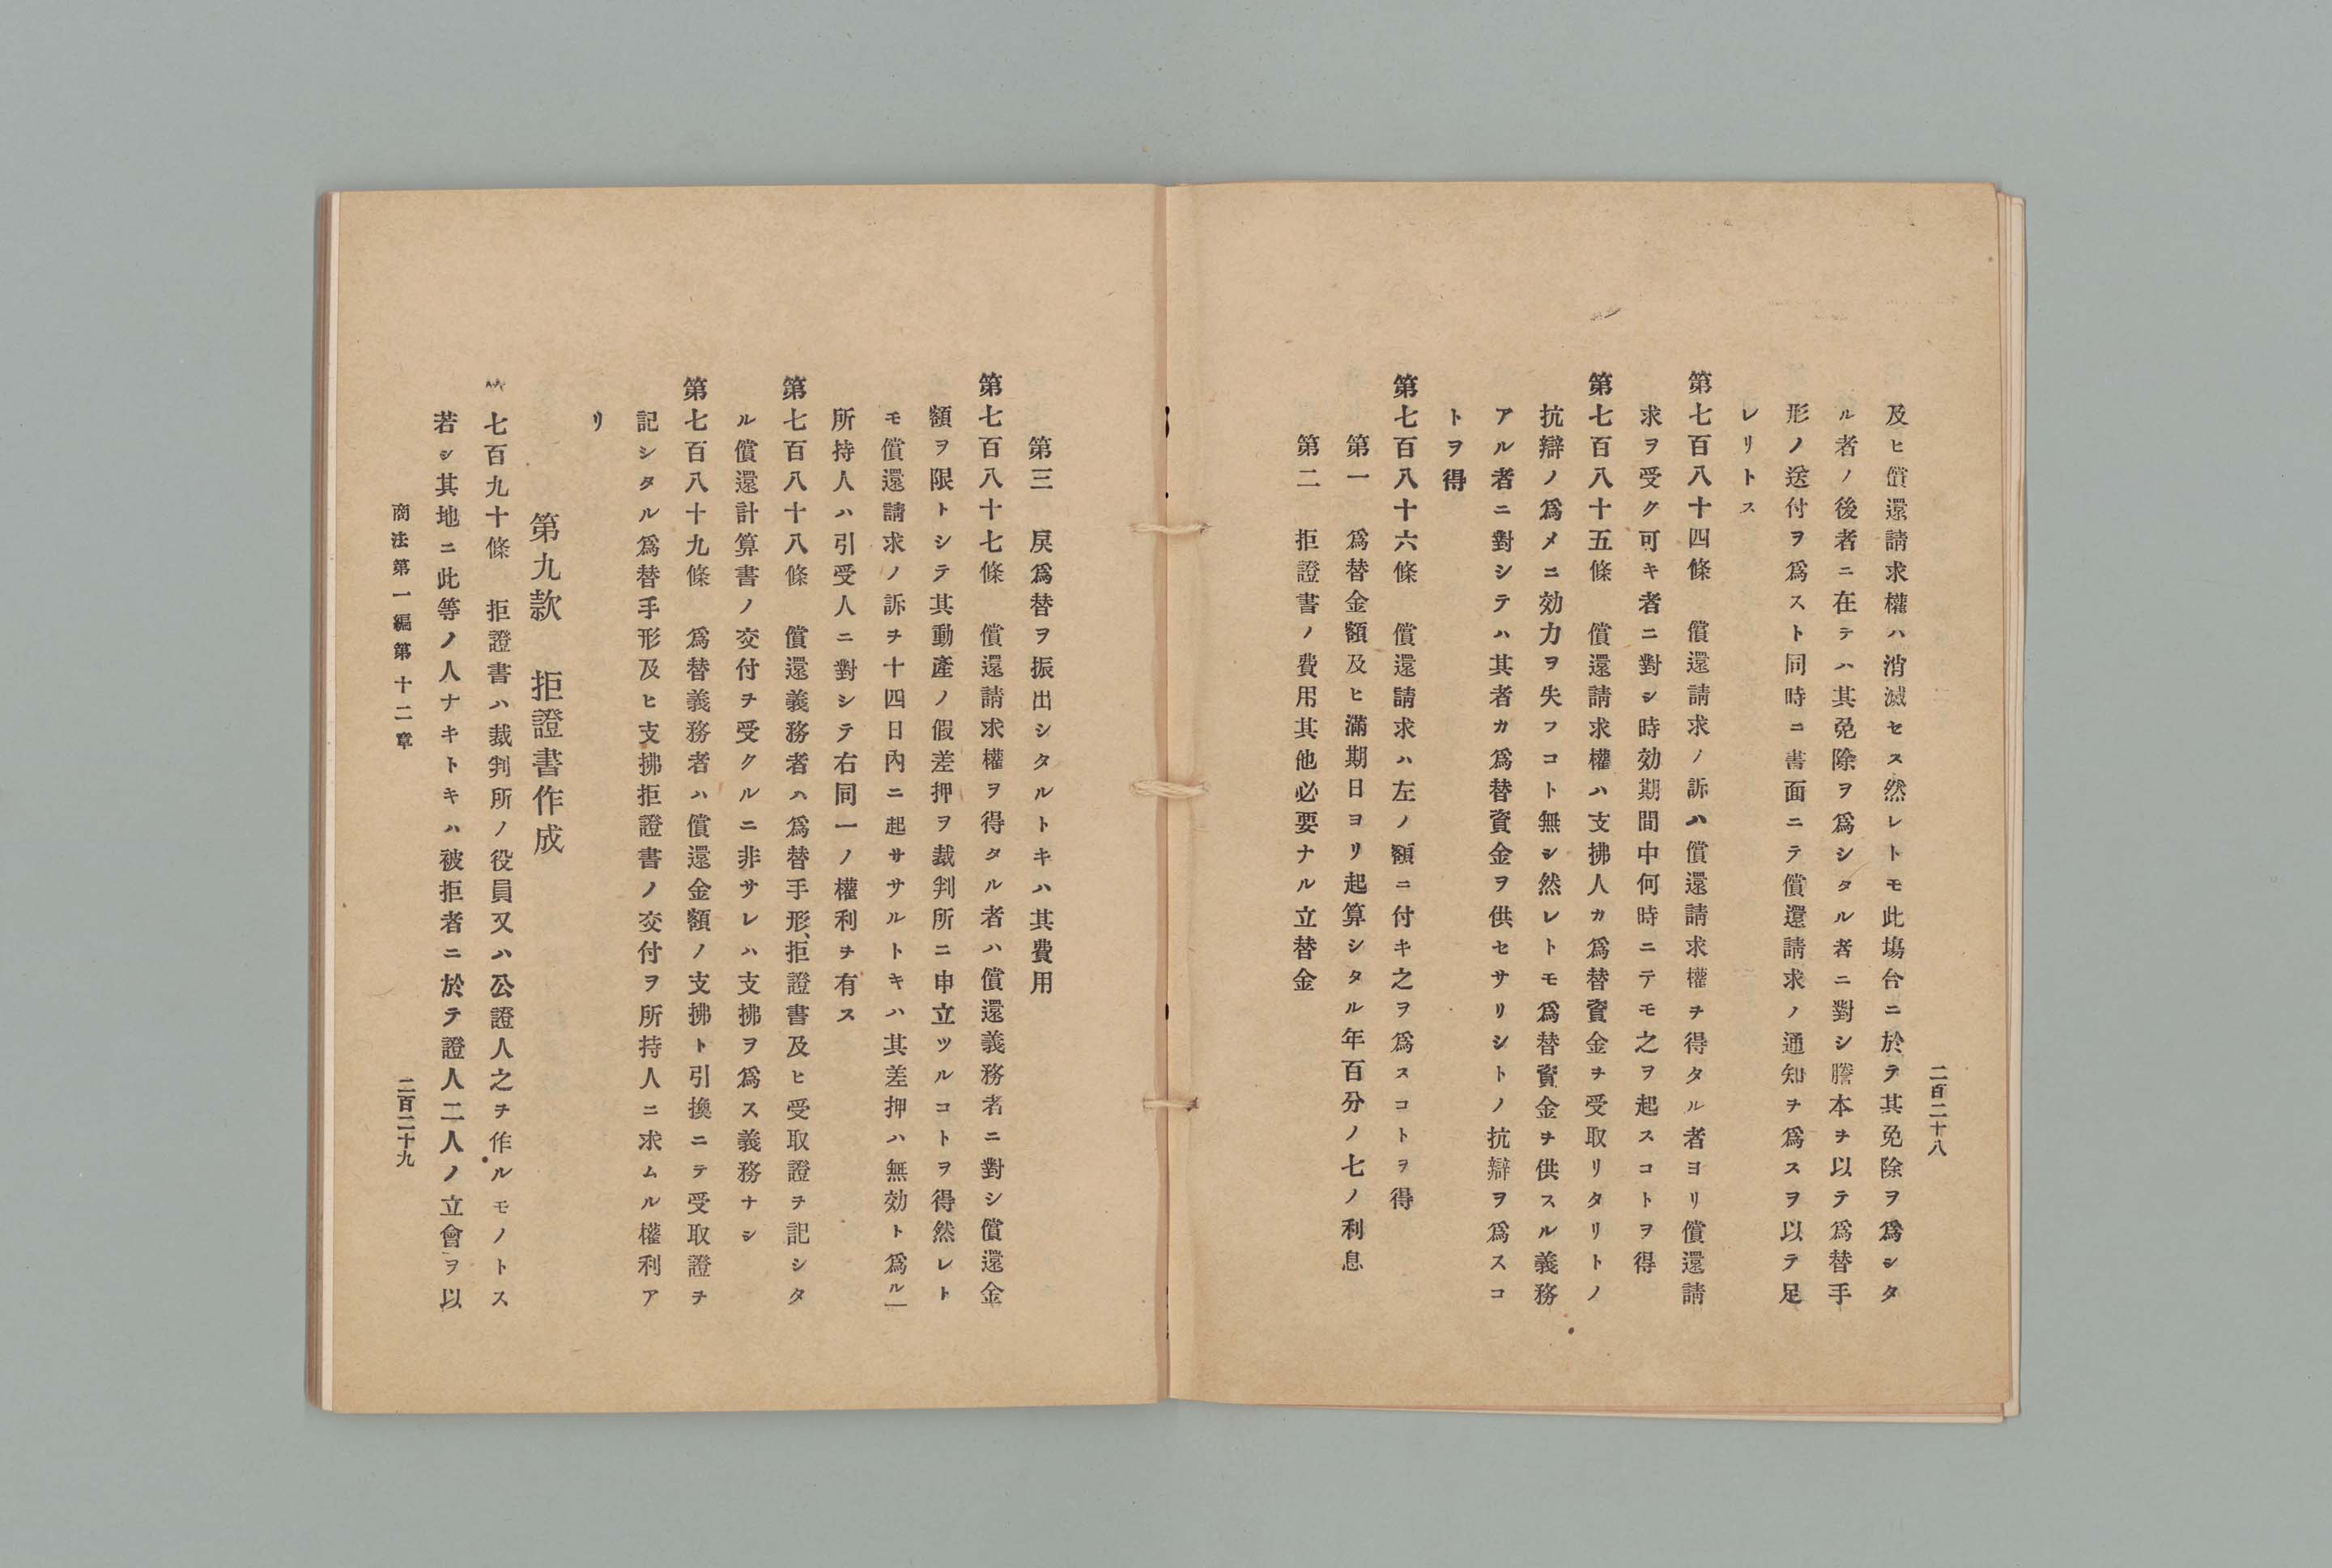 二百二十八
及ヒ償還請求權ハ消滅セス然レトモ此塲合ニ於テ其免除ヲ爲シタ
ル者ノ後者ニ在テハ其免除ヲ爲シタル者ニ對シ謄本ヲ以テ爲替手
形ノ送付ヲ爲スト同時ニ書面ニテ償還請求ノ通知ヲ爲スヲ以テ足
レリトス
第七百八十四條　償還請求ノ訴ハ償還請求權ヲ得タル者ヨリ償還請
求ヲ受ク可キ者ニ對シ時効期間中何時ニテモ之ヲ起スコトヲ得
第七百八十五條　償還請求權ハ支拂人カ爲替資金ヲ受取リタリトノ
抗辯ノ爲メニ効力ヲ失フコト無シ然レトモ爲替資金ヲ供スル義務
アル者ニ對シテハ其者カ爲替資金ヲ供セサリシトノ抗辯ヲ爲スコ
トヲ得
第七百八十六條　償還請求ハ左ノ額ニ付キ之ヲ爲スコトヲ得
第一　爲替金額及ヒ滿期日ヨリ起算シタル年百分ノ七ノ利息
第二　拒證書ノ費用其他必要ナル立替金
第三　戾爲替ヲ振出シタルトキハ其費用
第七百八十七條　償還請求權ヲ得タル者ハ償還義務者ニ對シ償還金
額ヲ限トシテ其動產ノ假差押ヲ裁判所ニ申立ツルコトヲ得然レト
モ償還請求ノ訴ヲ十四日內ニ起サルトキハ其差押ハ無効ト爲ル
所持人ハ引受人ニ對シテ右同一ノ權利ヲ有ス
第七百八十八條　償還義務者ハ爲替手形、拒證書及ヒ受取證ヲ記シタ
ル償還計算書ノ交付ヲ受クルニ非サレハ支拂ヲ爲ス義務ナシ
第七百八十九條　爲替義務者ハ償還金額ノ支拂ト引換ニテ受取證ヲ
記シタル爲替手形及ヒ支拂拒證書ノ交付ヲ所持人ニ求ムル權利ア
リ
第九款　拒證書作成
七百九十條　拒證書ハ裁判所ノ役員又ハ公證人之ヲ作ルモノトス
若シ其地ニ此等ノ人ナキトキハ被拒者ニ於テ證人二人ノ立會ヲ以
商法第一編第十二章
二百二十九